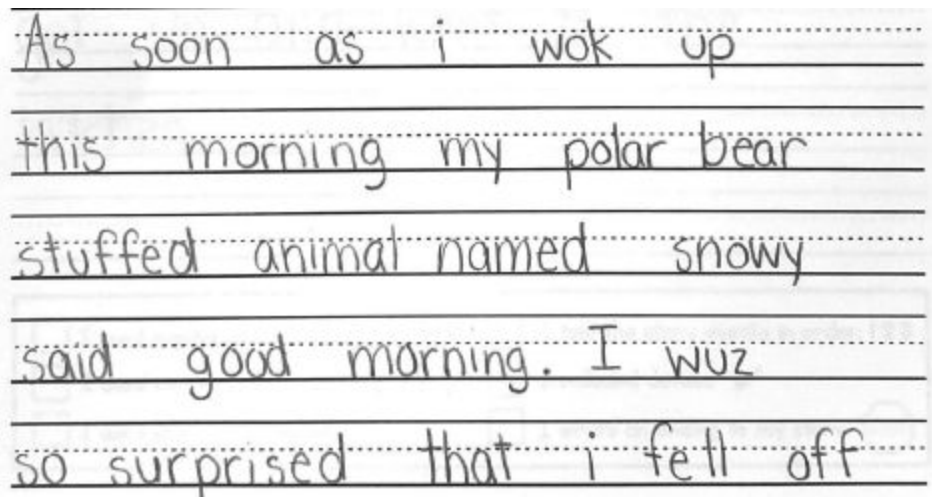 As soon as i wok up
this morning my polar bear
stuffed animal named snowy
said good morning. I wuz
so surprised that i fell off